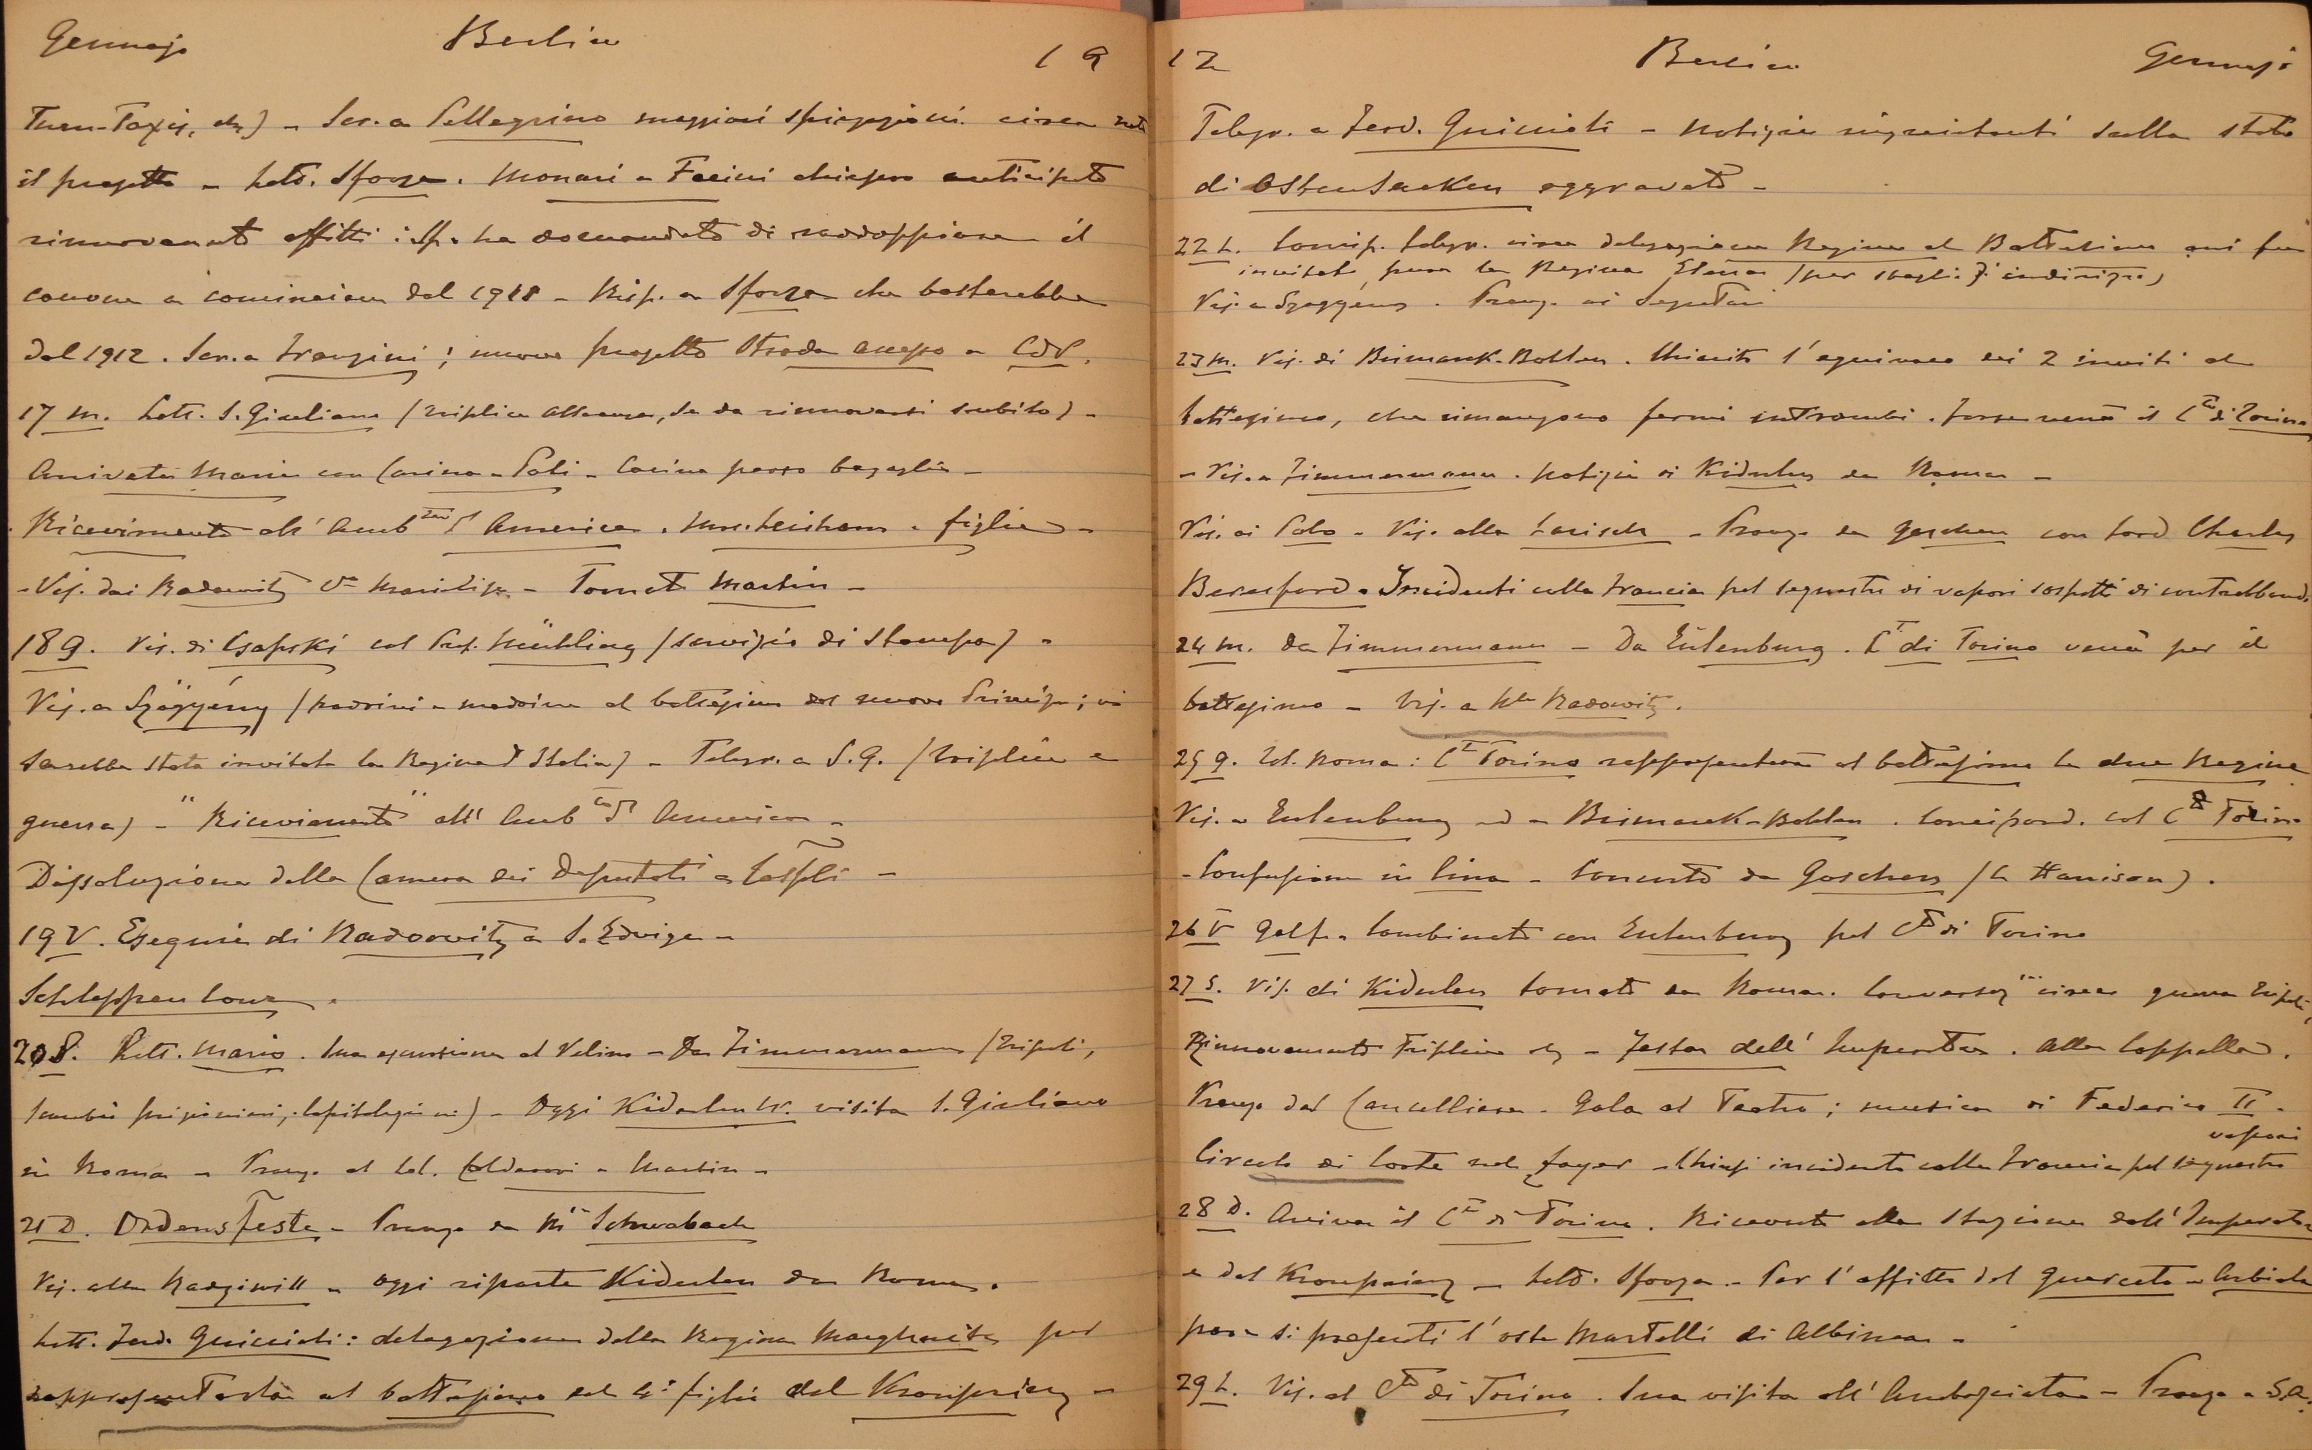 Gennajo Berlin 19
Turn-Taxis, etc) - Scr. a Pellegrino maggiori spiegazioni circa
il progetto - Lett. Sforza. Monari e Ferrini chiesero anticipato
rinnovamento affitti: Sf. ha domandato di raddoppiare il
canone a cominciare dal 1918 - Risp. a Sforza che basterebbe
dal 1912. Scr. a Franzini; nuovo progetto strada accesso a CdP.
17 M. Lett. S. Giuliano (triplice alleanza, se da rinnovarsi subito) -
Arrivata Maria con Carino - Poli - Carina perso bagaglio -
Ricevimento all' Amb d'America. Mrs. Leishman e figlia -
- Vis. dai Radowitz - Tornato Martin -
18 G. Vis. di Czapski col Prof. Mühling (servizio di stampa) -
Vis. a Szögyény (padrini e madrine al battesimo del nuovo Principe; vi
sarebbe stata invitata la Regina d'Italia) - Telegr. a S. G. (triplice e
guerra) - "Ricevimento" all' Amb d'America -
Dissoluzione della Camera dei Deputati a
19 V. Esequie di Radowitz a S. Edvige -
Schleppencour.
20 S. Lett. Mario. Sua escursione al Velino - Da Zimmermann (Tripoli,
scambio prigionieri, capitolazioni) - Oggi Kiderlen W. visita S. Giuliano
in Roma - Pranzo al Col. Calderari e Martin -
21 D. Ordensfeste - Pranzo da Schwabach
Vis. alla Radziwill - Oggi riparte Kiderlen da Roma.
Lett. Ferd. Guiccioli: delegazione della Regina Margherita per
rappresentarla al battesimo del 4° figlio del Kronprinz -
12 Berlin Gennajo
Telegr. a Ferd. Guiccioli - Notizie inquietanti sullo stato
di Osten Sacken aggravato -
22 L. Corrisp. telegr. circa delegazione Regina al Battesimo cui fu
invitata pure la Regina Elena (per sbaglio d'indirizzo)
Vis. a Szögyény. Pranz. ai Segretari
23 M. Vis. di Bismarck-Bohlen. Chiarito l'equivoco dei 2 inviti al
battesimo, che rimangono fermi entrambi. Forse verrà il C di Torino
- Vis. a Zimmermann. Notizie di Kiderlen da Roma -
Vis. ai Polo - Vis. alla Larisch - Pranzo da Goschen con Lord Charles
Beresford - Incidenti colla Francia pel sequestro di vapori sospetti di contrabband.
24 M. Da Zimmermann - Da Eulenburg. C. di Torino verrà per il
battesimo - Vis. a Radowitz.
25 G. Tel. Roma: C Torino rappresenterà al battesimo le due Regine
Vis. a Eulenburg ed a Bismarck-Bohlen. Corrispond. col C Torino
- Confusione in Cina - Concerto da Goschen (la Harrison).
26 V Golf - Combinato con Eulenburg pel C di Torino
27 S. Vis. di Kiderlen tornato da Roma. Conversaz circa guerra Tripoli,
Rinnovamento Triplice etc - Festa dell' Imperatore. Alla Cappella.
Pranzo dal Cancelliere - Gala al Teatro; musica di Federico II -
Circolo di Corte nel foyer - Chiusi incidenti colla Francia pel sequestro vapori
28 D. Arriva il C di Torino. Ricevuto alla stazione dall' Imperatore
e dal Kronprinz - Lett. Sforza. Per l'affitto del Querceto e Arbiola
pare si presenti l'oste Martelli di Albinea -
29 L. Vis. al C di Torino. Sua visita all' Ambasciata - Pranzo a S.A.